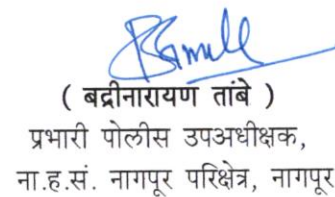 ( बद्रीनारायण तांबे )
प्रभारी पोलीस उपअधीक्षक,
ना.ह.सं. नागपूर परिक्षेत्र, नागपूर